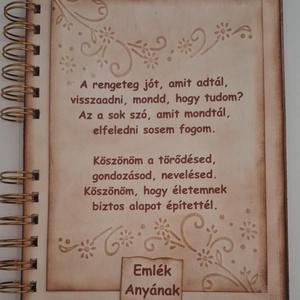 A rengeteg jót, amit adtál,
visszaadni, mondd, hogy tudom?
Az a sok szó, amit mondtál,
elfeledni sosem fogom.
Köszönöm a törődésed,
gondozásod, nevelésed.
Köszönöm, hogy életemnek
biztos alapot építettél.
Emlék
Anyának